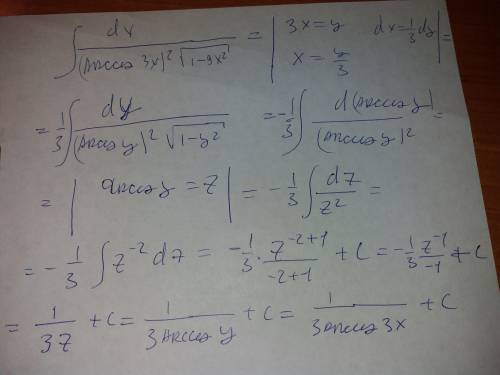 ∫ dx / ((arccos 3x)² √(1-9x²)) = | 3x = y   dx = 1/3 dy   x = y/3 | =
= 1/3 ∫ dy / ((arccos y)² √(1-y²)) = -1/3 ∫ d(arccos y) / (arccos y)² =
= | arccos y = z | = -1/3 ∫ dz / z² =
= -1/3 ∫ z⁻² dz = -1/3 · z⁻²⁺¹ / (-2+1) + C = -1/3 z⁻¹ / -1 + C
= 1 / 3z + C = 1 / (3 arccos y) + C = 1 / (3 arccos 3x) + C